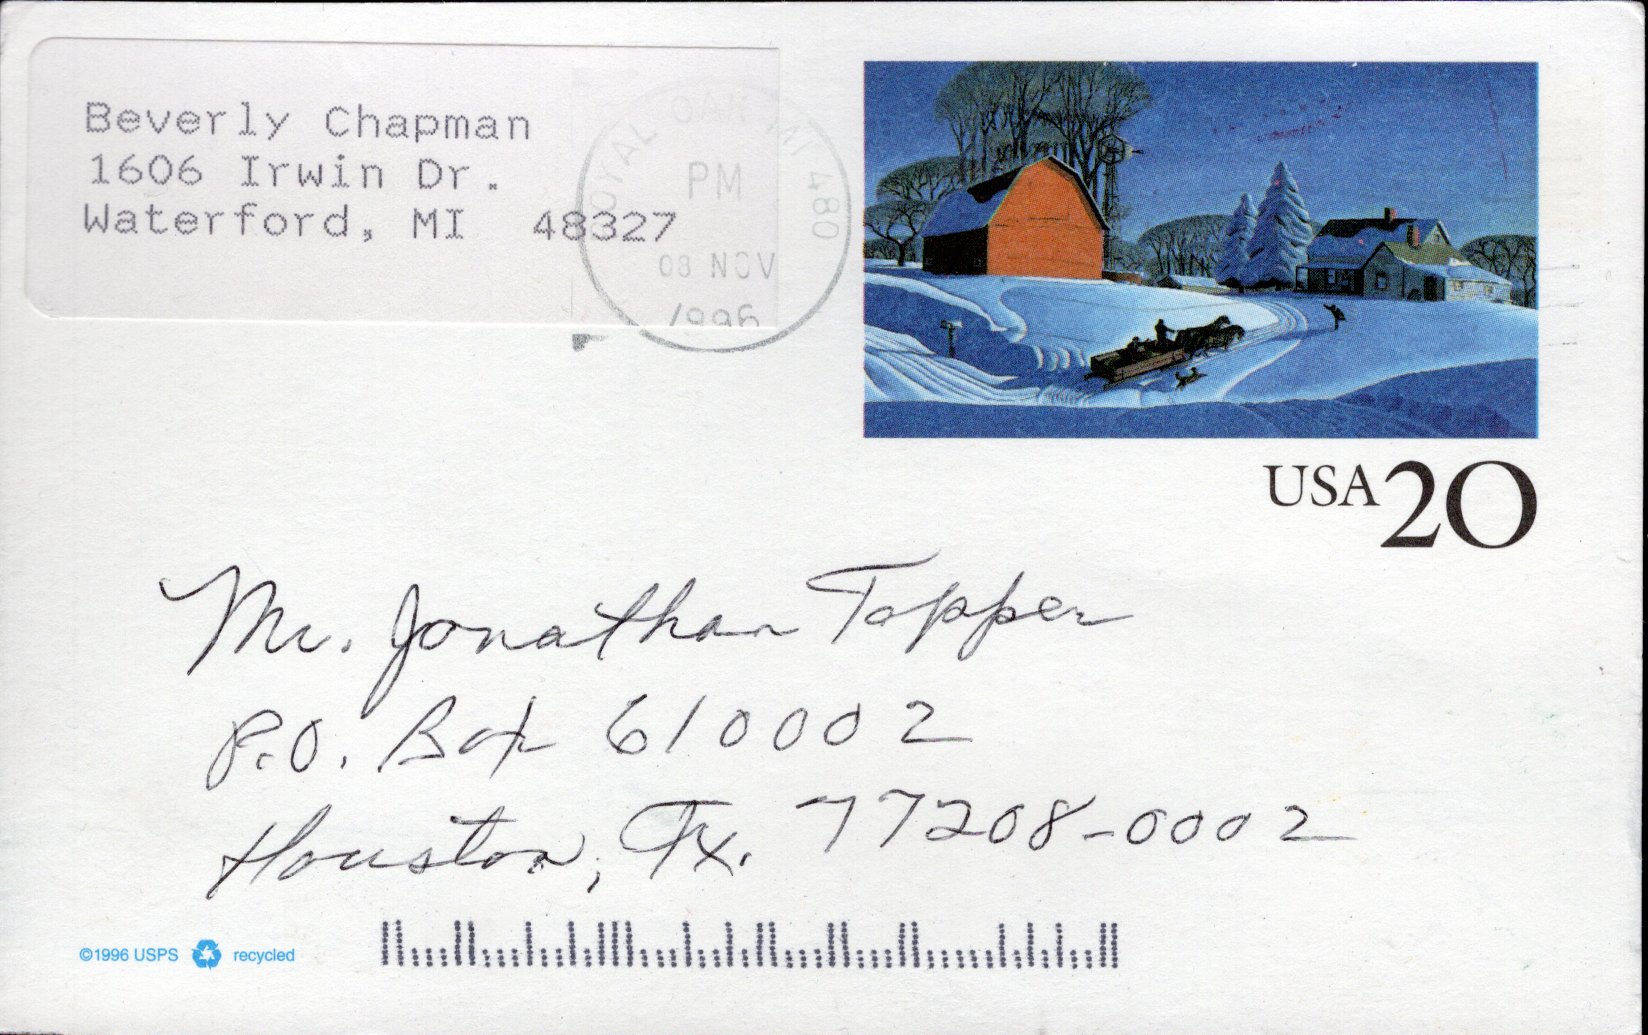 Beverly Chapman
1606 Irwin Dr.
Waterford, MI 48327
ROYAL OAK MI 480
PM
08 NOV
1996
USA 20
Mr. Jonathan Topper
P.O. Box 610002
Houston, Tx. 77208-0002
©1996 USPS recycled